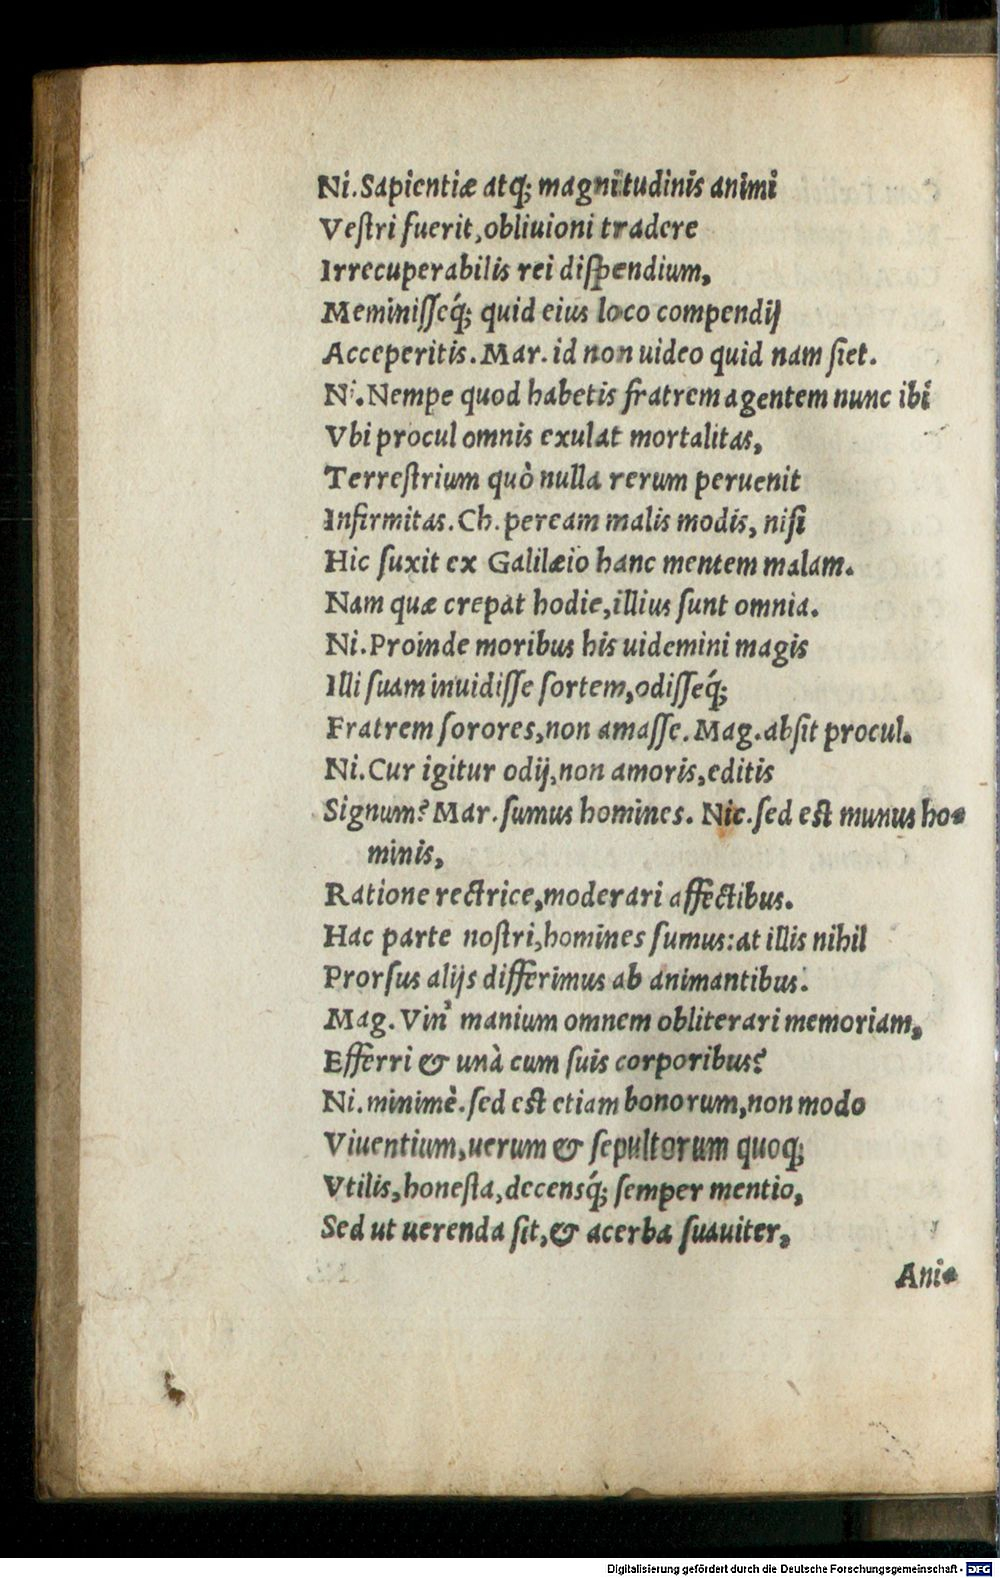 Ni. Sapientiæ atq; magnitudinis animi
Veſtri fuerit, obliuioni tradere
Irrecuperabilis rei diſpendium,
Meminiſſeq́; quid eius loco compendij
Acceperitis. Mar. id non uideo quid nam ſiet.
Ni. Nempe quod habetis fratrem agentem nunc ibi
Vbi procul omnis exulat mortalitas,
Terreſtrium quò nulla rerum peruenit
Infirmitas. Ch. peream malis modis, niſi
Hic ſuxit ex Galilæio hanc mentem malam.
Nam quæ crepat hodie, illius ſunt omnia.
Ni. Proinde moribus his uidemini magis
Illi ſuam inuidiſſe ſortem, odiſſeq́;
Fratrem ſorores, non amaſſe. Mag. abſit procul.
Ni. Cur igitur odij, non amoris, editis
Signum? Mar. ſumus homines. Nic. ſed eſt munus ho-
minis,
Ratione rectrice, moderari affectibus.
Hac parte noſtri, homines ſumus: at illis nihil
Prorſus alijs differimus ab animantibus.
Mag. Vin' manium omnem obliterari memoriam,
Efferri & unà cum ſuis corporibus?
Ni. minimè. ſed eſt etiam bonorum, non modo
Viuentium, uerum & ſepultorum quoq;
Vtilis, honeſta, decensq́; ſemper mentio,
Sed ut uerenda ſit, & acerba ſuauiter,
Ani-
Digitalisierung gefördert durch die Deutsche Forschungsgemeinschaft - DFG